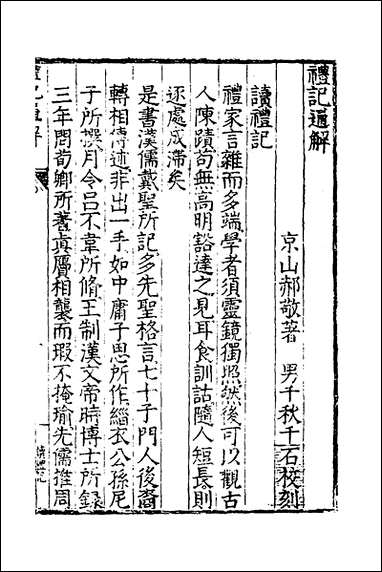 禮記通解
京山郝敬著　男千秋千石校刻
讀禮記
禮家言雜而多端學者須靈鏡獨照然後可以觀古
人陳蹟苟無高明谿達之見耳食訓詁隨人短長則
逐處成滯矣
是書漢儒戴聖所記多先聖格言七十子門人後裔
轉相傳述非出一手如中庸子思所作緇衣公孫尼
子所撰月令呂不韋所脩王制漢文帝時博士所錄
三年問荀卿所著眞贗相襲而瑕不掩瑜先儒推周
讀禮記